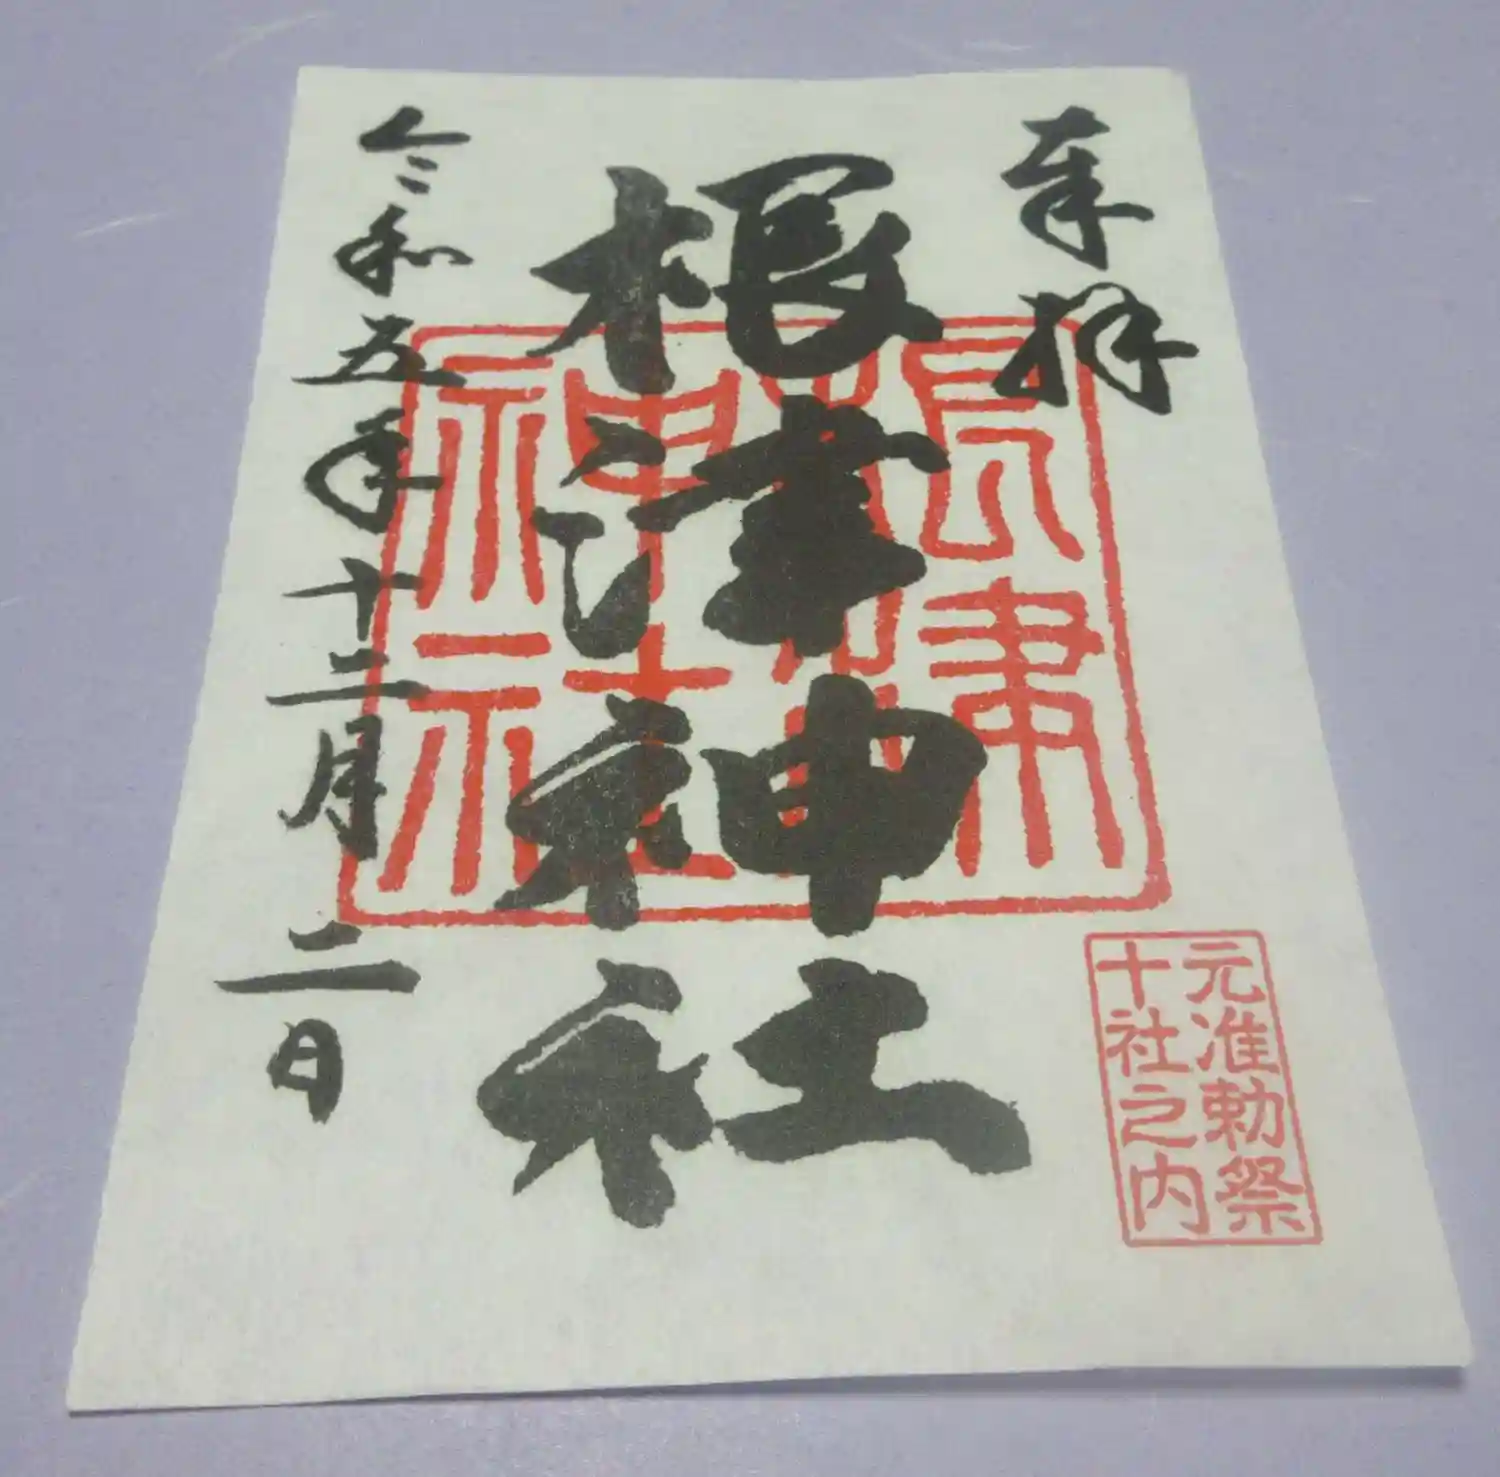 奉拝
元准勅祭
十社之内
根津神社
根津
神社
令和五年十二月二日